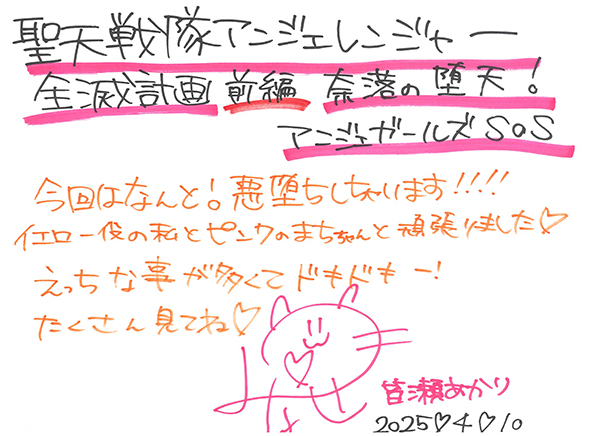 聖天戦隊アンジェレンジャー
全滅計画 前編 奈落の堕天!
アンジェガールズSOS
今回はなんと!悪堕ちしちゃいます!!!!
イエロー役の私とピンクのまちちゃんと頑張りました♡
えっちな事が多くてドキドキー!
たくさん見てね♡
皆瀬あかり
2025♡4♡10